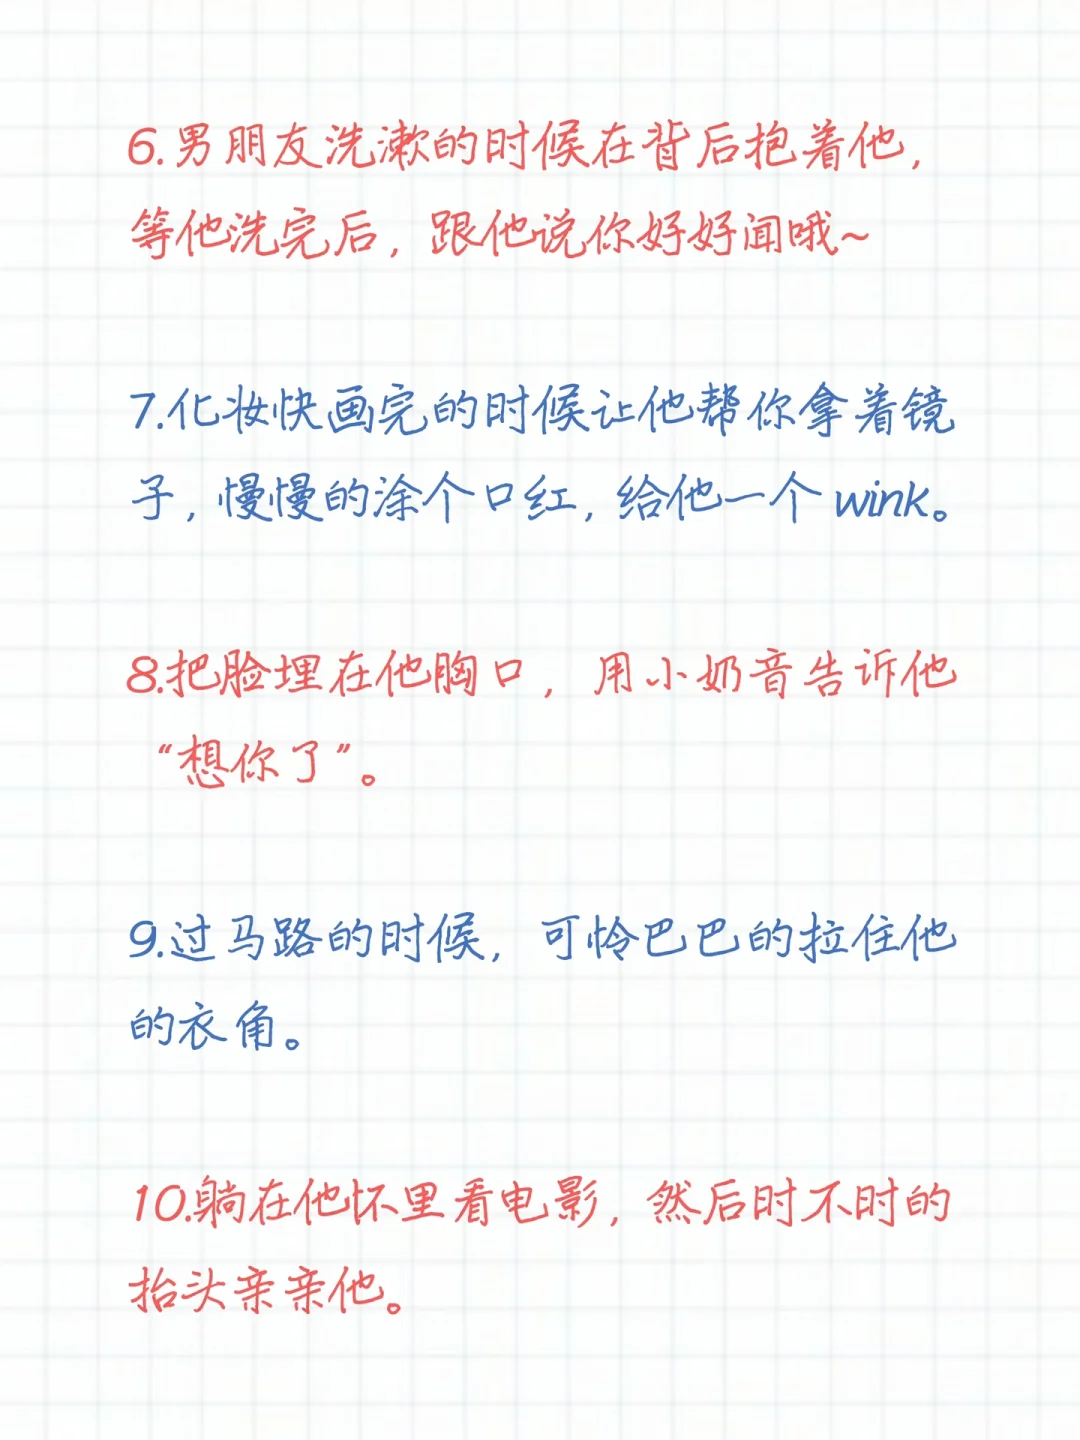 6.男朋友洗漱的时候在背后抱着他,
等他洗完后,跟他说你好好闻哦~
7.化妆快画完的时候让他帮你拿着镜
子,慢慢的涂个口红,给他一个wink。
8.把脸埋在他胸口,用小奶音告诉他
“想你了”。
9.过马路的时候,可怜巴巴的拉住他
的衣角。
10.躺在他怀里看电影,然后时不时的
抬头亲亲他。